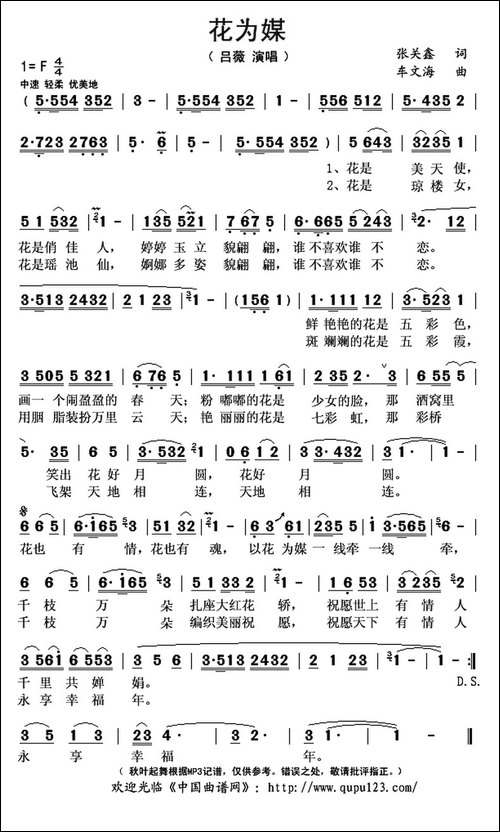 花为媒
（ 吕薇 演唱 ）
张关鑫 词
1= F 4/4
车文海 曲
中速 轻柔 优美地
( 5·554 352 | 3 - | 5·554 352 | 1 - | 556 512 | 5·435 2 |
2·723 2763 | 5· 6 | 5 - | 5·554 352 ) | 5 643 | 3235 1 |
1、花是 美天使，
2、花是 琼楼女，
5 1 532 | 2 1 - | 135 5 2 | 7 67 5 | 6·665 5 243 | 2· 12 |
花是俏佳 人， 婷婷 玉 立 貌翩 翩，谁 不喜欢谁 不 恋。
花是瑶池 仙， 婀娜 多 姿 貌翩 翩，谁 不喜欢谁 不 恋。
3·513 2432 | 2 1 23 | 1 - | (156 1) | 3·513 212 | 3·523 1 |
鲜 艳艳的花是 五 彩 色，
斑 斓斓的花是 五 彩 霞，
3 505 5 321 | 6 76 5 | 5·135 1 113 | 1 61 | 2 35 2· 3 | 6 55 5 |
画一 个闹盈盈的 春 天；粉 嘟嘟的花是 少女的脸，那 酒窝里
用胭 脂装扮万里 云 天；艳 丽丽的花是 七彩 虹，那 彩桥
5· 35 | 6 5 | 3·532 | 1 - | 0 6 1 2 | 3 3·432 | 3 1 - | 1 - |
笑出 花 好 月 圆， 花好 月 圆。
飞架 天 地 相 连， 天地 相 连。
6 6 5 | 6·165 3 | 51 32 | 2 1 - | 6 3 6 1 | 2 35 5 | 1 3·565 | 6 - |
花也 有 情，花也有 魂，以花 为媒 一 线牵 一线 牵，
6 6 5 | 6·165 3 | 5 135 2 32 | 2 1 - | 1 6 53 | 3 235 | 2 12 |
千枝 万 朵 扎座大红花 轿， 祝愿世上 有 情人
千枝 万 朵 编织美丽祝 愿， 祝愿天下 有 情人
3 561 6 553 | 3 5 6 | 3·513 2432 | 2 1 23 | 1 - | 1 - :||
千里 共 婵 娟。 D.S.
永享 幸 福 年。
3 5 1 3 | 23 1· | 3· 5 | 1· 3 | 23 1· | 1 - | 1 - ||
永 享 幸 福 年。
（ 秋叶起舞根据MP3记谱，仅供参考。错误之处，敬请批评指正。）
欢迎光临《中国曲谱网》：http://www.qupu123.com/